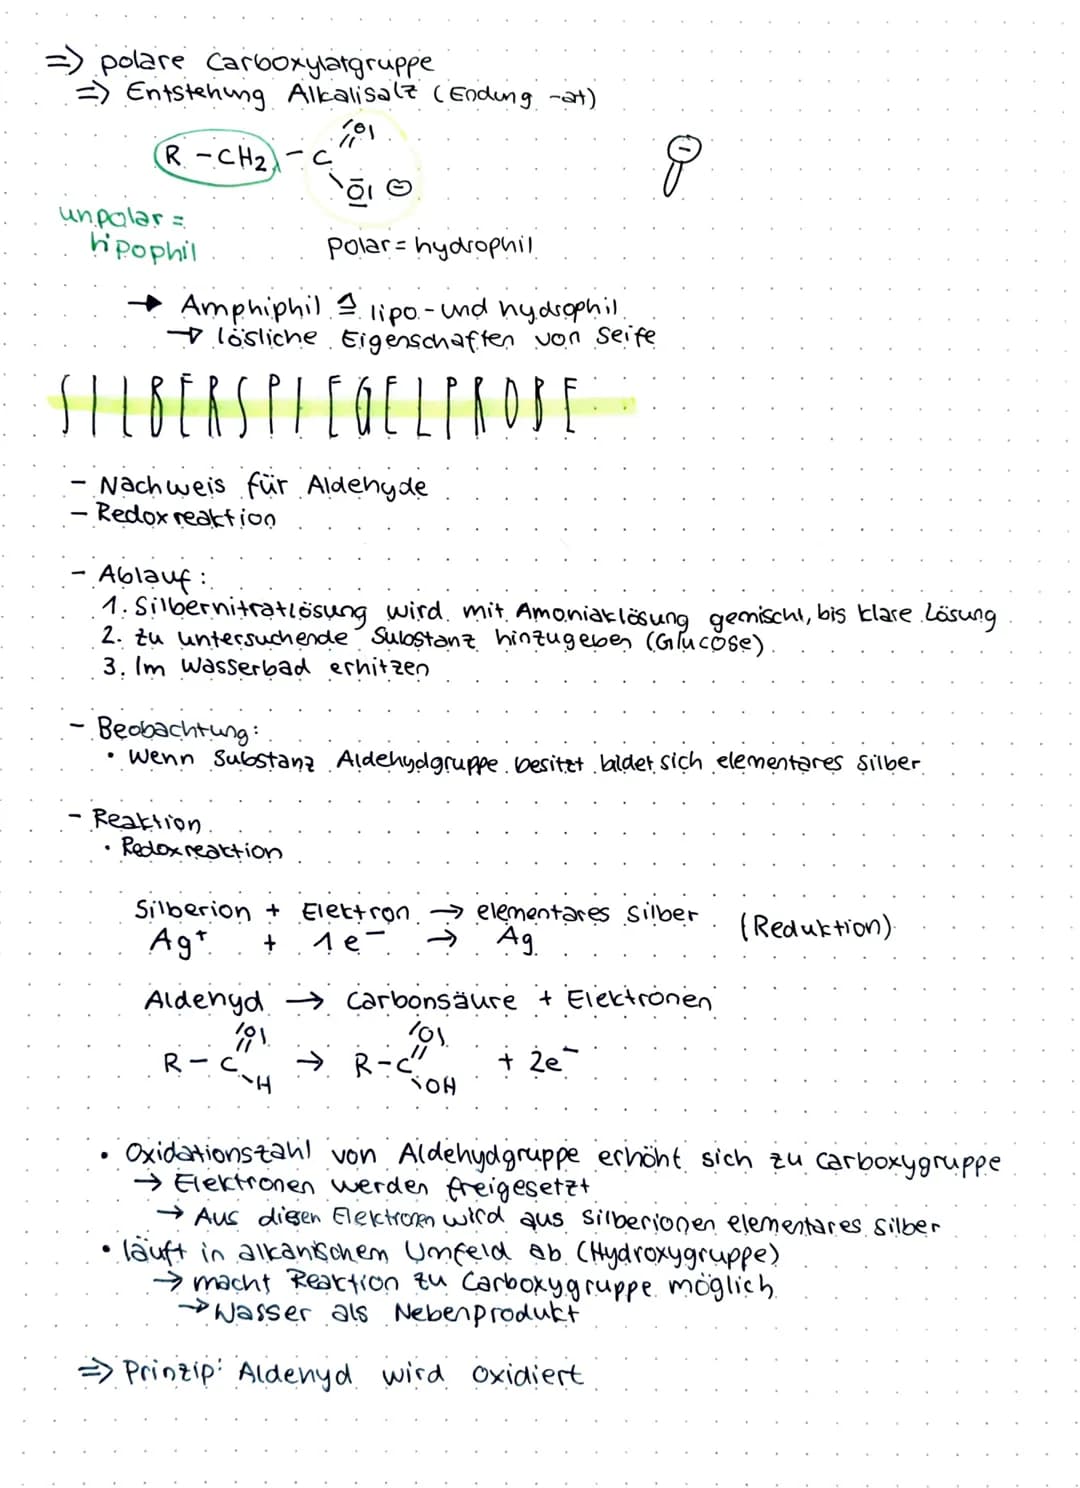 => polare Carboxylatgruppe
=> Entstehung Alkalisalz (Endung -at)
R -CH2 - C
|O|
|O| ⊖
⊖
unpolar =
lipophil
Polar = hydrophil
→ Amphiphil ≙ lipo- und hydrophil
→ lösliche Eigenschaften von Seife
SILBERSPIEGELPROBE
- Nachweis für Aldehyde
- Redoxreaktion
- Ablauf:
1. Silbernitratlösung wird mit Amoniaklösung gemischt, bis klare Lösung
2. zu untersuchende Substanz hinzugeben (Glucose)
3. Im Wasserbad erhitzen
- Beobachtung:
• Wenn Substanz Aldehydgruppe besitzt bildet sich elementares Silber
- Reaktion
• Redoxreaktion
Silberion + Elektron → elementares Silber (Reduktion)
Ag+ + 1e- → Ag
Aldehyd → Carbonsäure + Elektronen
|O| |O|
R - C → R - C + 2e-
H OH
• Oxidationszahl von Aldehydgruppe erhöht sich zu Carboxygruppe
→ Elektronen werden freigesetzt
→ Aus diesen Elektronen wird aus Silberionen elementares Silber
• läuft in alkanischem Umfeld ab (Hydroxygruppe)
→ macht Reaktion zu Carboxygruppe möglich
→ Wasser als Nebenprodukt
=> Prinzip: Aldehyd wird oxidiert